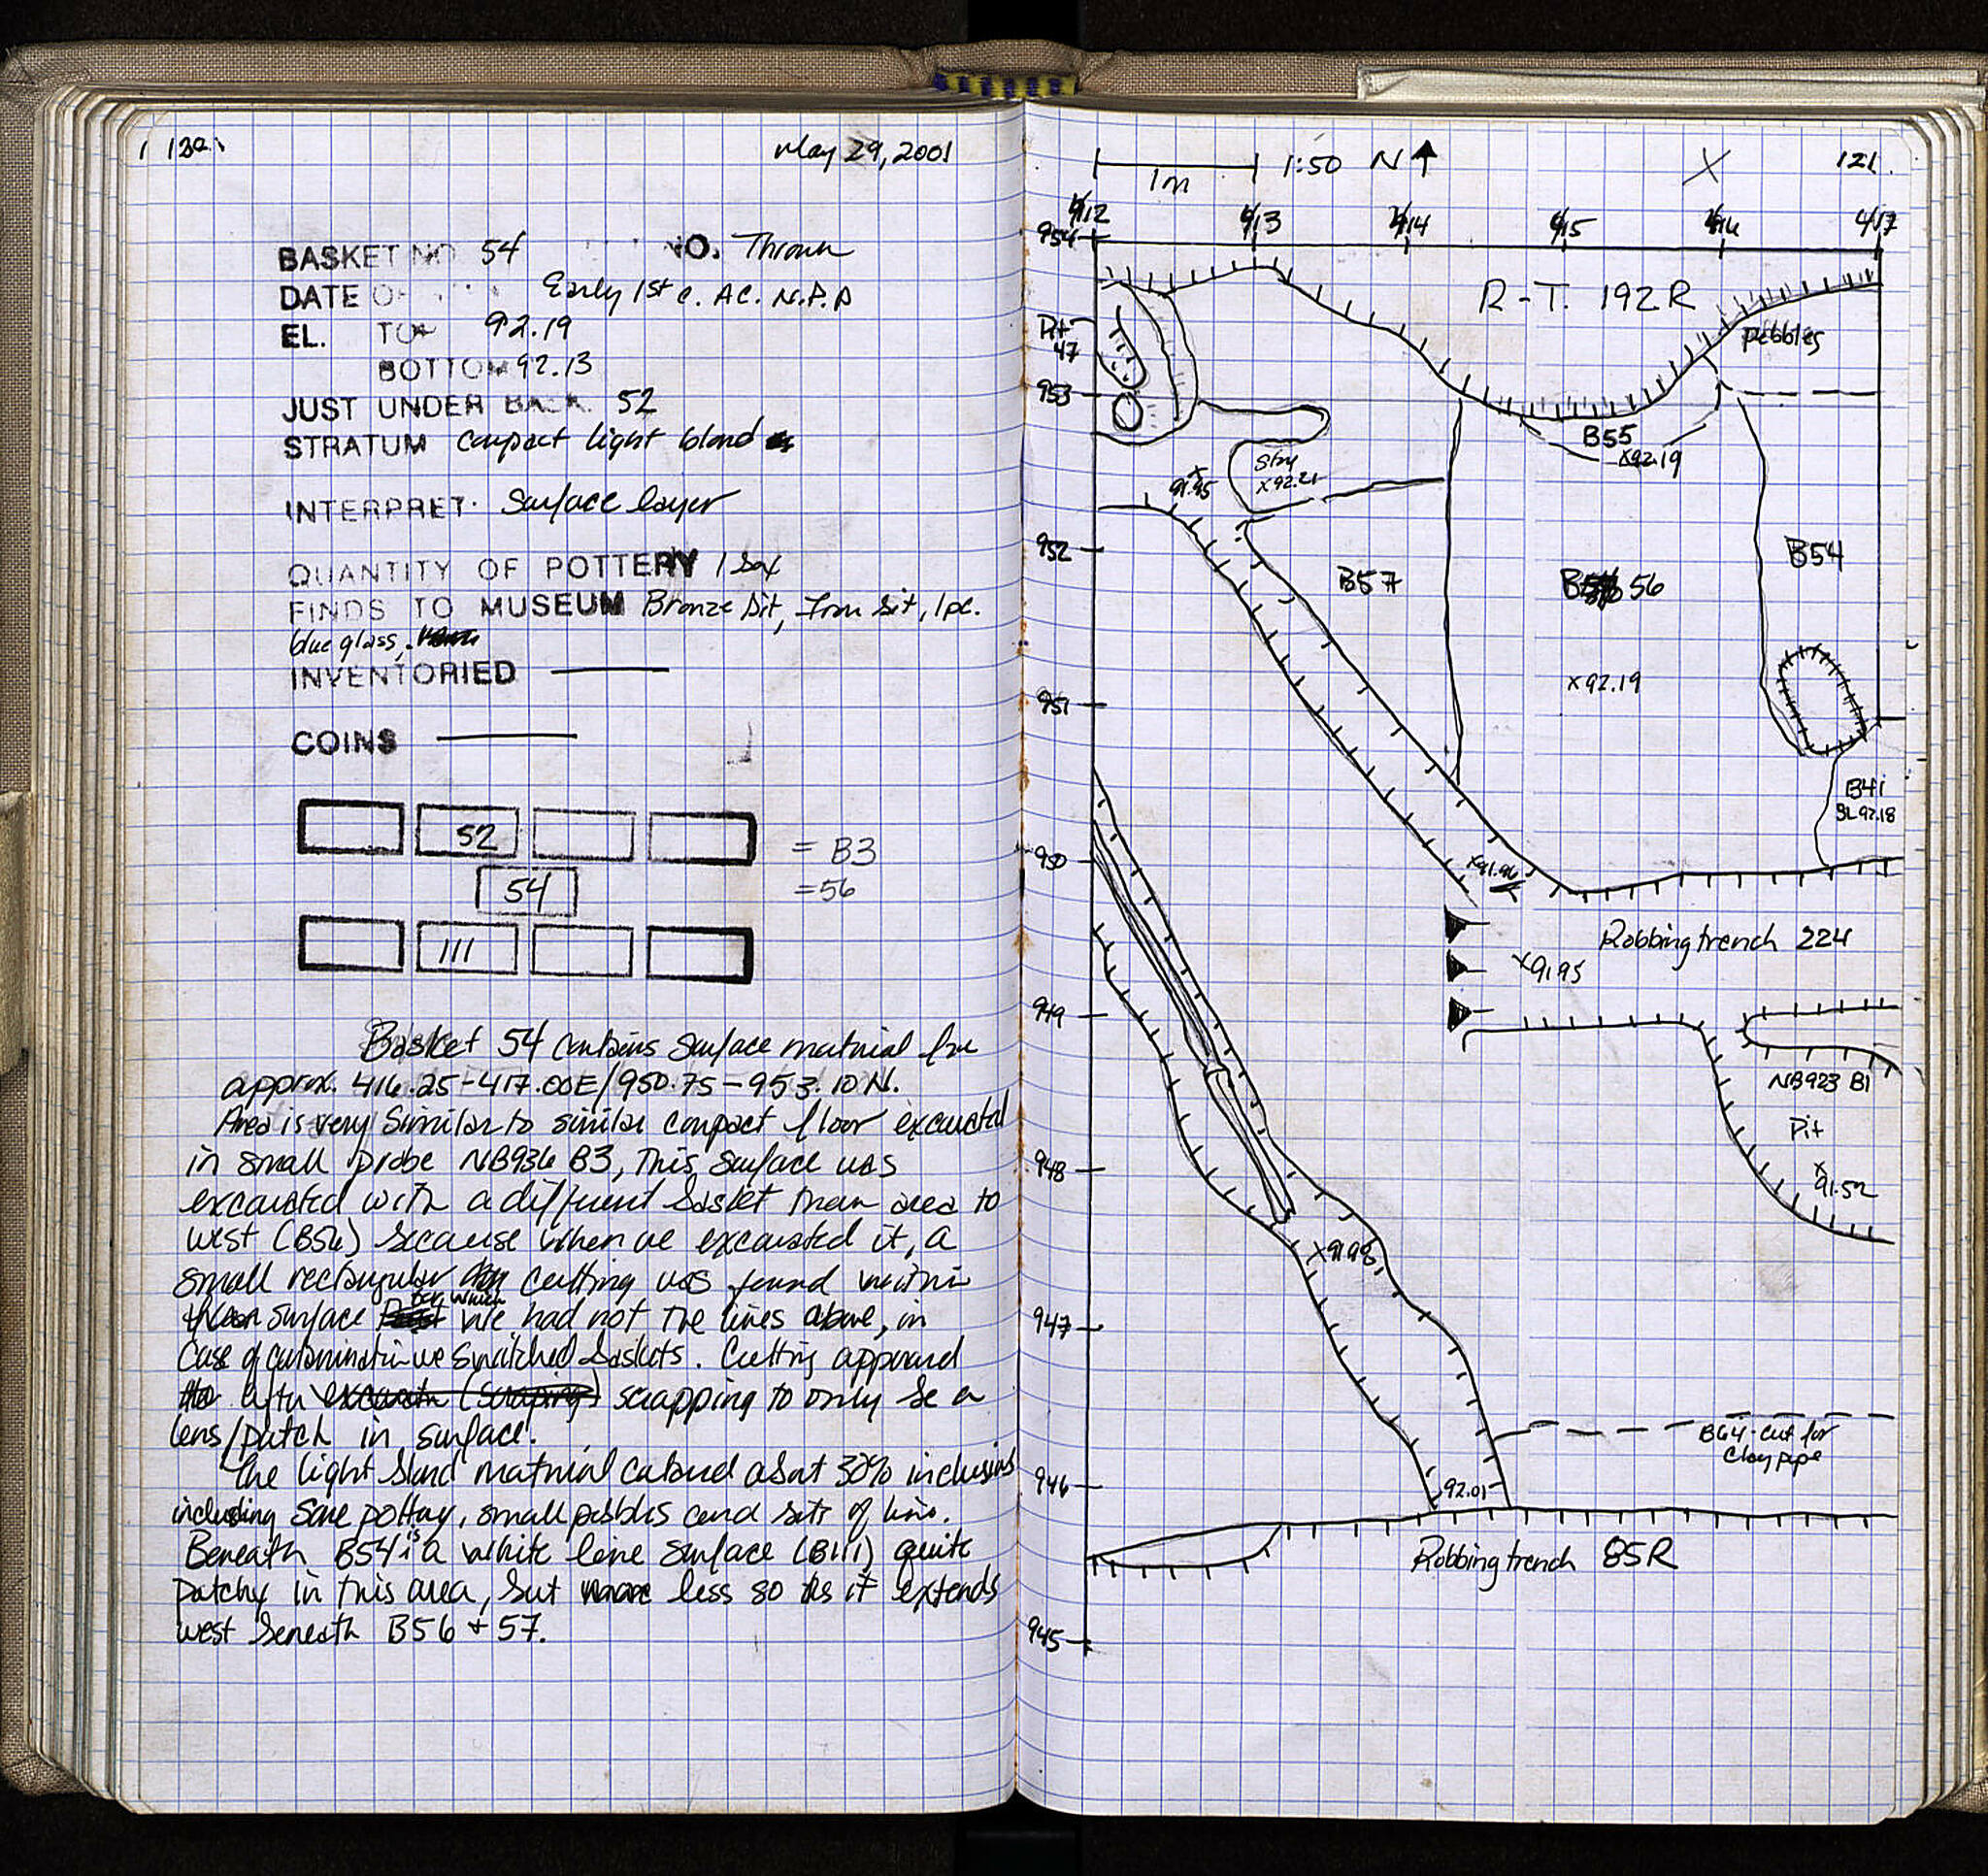 120.
May 29, 2001
BASKET NO 54 NO. Thrown
DATE O Early 1st c. AC. N.P.D
EL. TOP 92.19
BOTTOM 92.13
JUST UNDER BASK. 52
STRATUM Compact light bland
INTERPRET. Surface layer
QUANTITY OF POTTERY 1 box
FINDS TO MUSEUM Bronze bit, Iron bit, 1pc.
blue glass,
INVENTORIED
COINS
52 = B3
54 =56
111
Basket 54 contains surface material for
approx. 416.25-417.00E/950.75-953.10 N.
Area is very similar to similar compact floor excavated
in small probe NB936 B3, This surface was
excavated with a different basket than area to
west (B56) because when we excavated it, a
small rectangular cutting was found within
surface which we had not the lines above, in
case of contamination we switched baskets. Cutting appeared
after excavatn (scraping) scrapping to only be a
lens/patch in surface.
The light bland material about 30% inclusions
including some pottery, small pebbles and bits of lime.
Beneath B54 is a white lime surface (B111) quite
patchy in this area, but less so as it extends
west beneath B56 + 57.
1m 1:50 N X 121.
412 413 414 415 416 417
954
R-T. 192R
pebbles
Pit
47
953
B55
x92.19
x
91.95
x92.21
952
B57
B 56
B54
x92.19
951
B41
SL92.18
950
x91.96
Robbing trench 224
x91.95
949
NB923 B1
Pit
948
x
91.52
x91.98
947
B64-cut for
Clay pipe
946
92.01
Robbing trench 85R
945